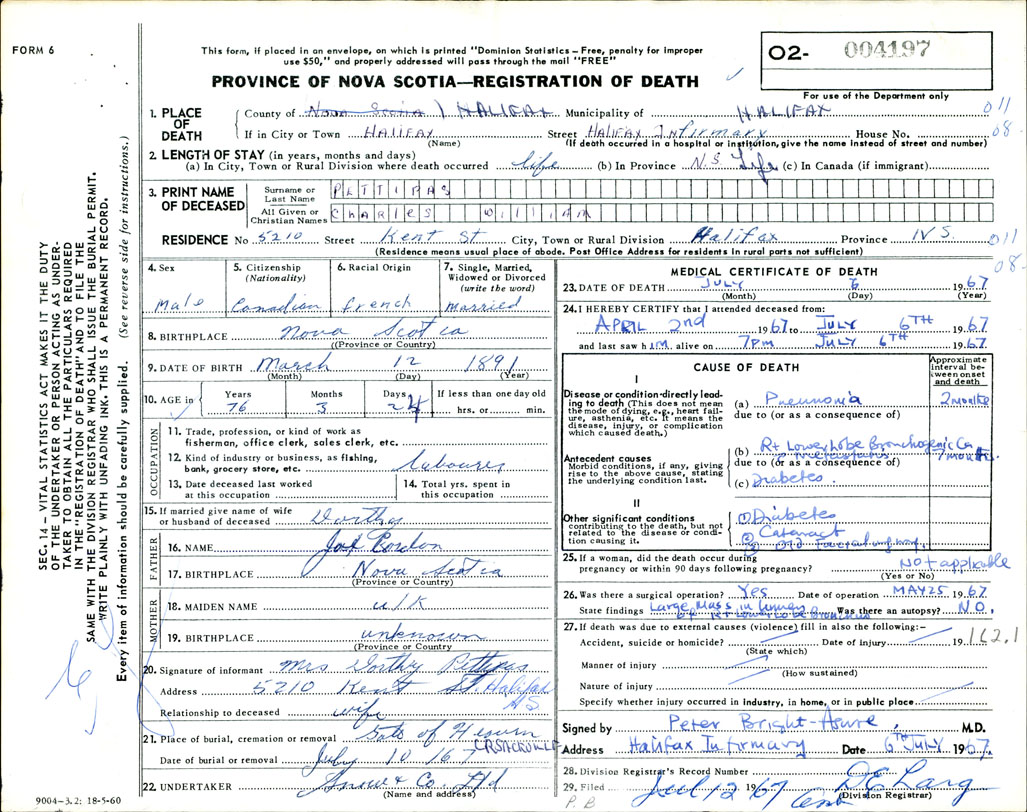 FORM 6
This form, if placed in an envelope, on which is printed "Dominion Statistics – Free, penalty for improper
use $50," and properly addressed will pass through the mail "FREE"
PROVINCE OF NOVA SCOTIA—REGISTRATION OF DEATH
O2- 004197
For use of the Department only
1. PLACE OF DEATH
County of Nova Scotia HALIFAX Municipality of HALIFAX 011
If in City or Town HALIFAX Street HALIFAX Infirmary House No. 08.
(Name) (If death occurred in a hospital or institution, give the name instead of street and number)
2. LENGTH OF STAY (in years, months and days)
(a) In City, Town or Rural Division where death occurred life (b) In Province N.S. Life (c) In Canada (if immigrant)
3. PRINT NAME OF DECEASED
Surname or Last Name PETTIPAS
All Given or Christian Names Charles William
RESIDENCE No 5210 Street Kent St City, Town or Rural Division Halifax Province N.S. 011
(Residence means usual place of abode. Post Office Address for residents in rural parts not sufficient) 08-
4. Sex
Male
5. Citizenship (Nationality)
Canadian
6. Racial Origin
french
7. Single, Married, Widowed or Divorced (write the word)
married
8. BIRTHPLACE Nova Scotia
(Province or Country)
9. DATE OF BIRTH March 12 1891
(Month) (Day) (Year)
10. AGE in
Years 76
Months 3
Days 24
If less than one day old
hrs. or min.
OCCUPATION
11. Trade, profession, or kind of work as
fisherman, office clerk, sales clerk, etc.
12. Kind of industry or business, as fishing,
bank, grocery store, etc. labourer
13. Date deceased last worked
at this occupation
14. Total yrs. spent in
this occupation
15. If married give name of wife
or husband of deceased Dorthy
FATHER
16. NAME
17. BIRTHPLACE Nova Scotia
(Province or Country)
MOTHER
18. MAIDEN NAME u/k
19. BIRTHPLACE unknown
(Province or Country)
20. Signature of informant Mrs Dorthy Pettipas
Address 5210 Kent St. Halifax
NS
Relationship to deceased wife
21. Place of burial, cremation or removal Gate of Heaven
Date of burial or removal July 10 1967
22. UNDERTAKER Snow & Co. Ltd
(Name and address)
MEDICAL CERTIFICATE OF DEATH
23. DATE OF DEATH JULY 6 1967
(Month) (Day) (Year)
24. I HEREBY CERTIFY that I attended deceased from:
APRIL 2nd 1967 to JULY 6TH 1967
and last saw him alive on 7PM JULY 6TH 1967.
CAUSE OF DEATH
Approximate interval between onset and death
I
Disease or condition directly leading to death (This does not mean the mode of dying, e.g., heart failure, asthenia, etc. It means the disease, injury, or complication which caused death.)
(a) Pneumonia 2 months
due to (or as a consequence of)
Antecedent causes
Morbid conditions, if any, giving rise to the above cause, stating the underlying condition last.
(b) Rt Lower Lobe Bronchogenic Ca 7 months.
due to (or as a consequence of)
(c) Diabetes.
II
Other significant conditions
contributing to the death, but not related to the disease or condition causing it.
(1) Diabetes
(2) Cataract
25. If a woman, did the death occur during
pregnancy or within 90 days following pregnancy? Not applicable
(Yes or No)
26. Was there a surgical operation? Yes Date of operation MAY 25 1967
State findings Large Mass in Rt Lower Lobe Bronchus Was there an autopsy? NO.
27. If death was due to external causes (violence) fill in also the following:–
Accident, suicide or homicide? Date of injury 19 162.1
(State which)
Manner of injury
(How sustained)
Nature of injury
Specify whether injury occurred in industry, in home, or in public place
Signed by Peter Bright-Asare M.D.
Address Halifax Infirmary Date 6TH JULY 1967.
28. Division Registrar's Record Number
29. Filed Jul 12 1967
(Division Registrar)
P.B
9004-3.2: 18-5-60
SEC. 14 - VITAL STATISTICS ACT MAKES IT THE DUTY
OF THE UNDERTAKER OR PERSON ACTING AS UNDER-
TAKER TO OBTAIN ALL THE PARTICULARS REQUIRED
IN THE "REGISTRATION OF DEATH" AND TO FILE THE
SAME WITH THE DIVISION REGISTRAR WHO SHALL ISSUE THE BURIAL PERMIT.
WRITE PLAINLY WITH UNFADING INK. THIS IS A PERMANENT RECORD.
Every item of information should be carefully supplied. (See reverse side for instructions.)